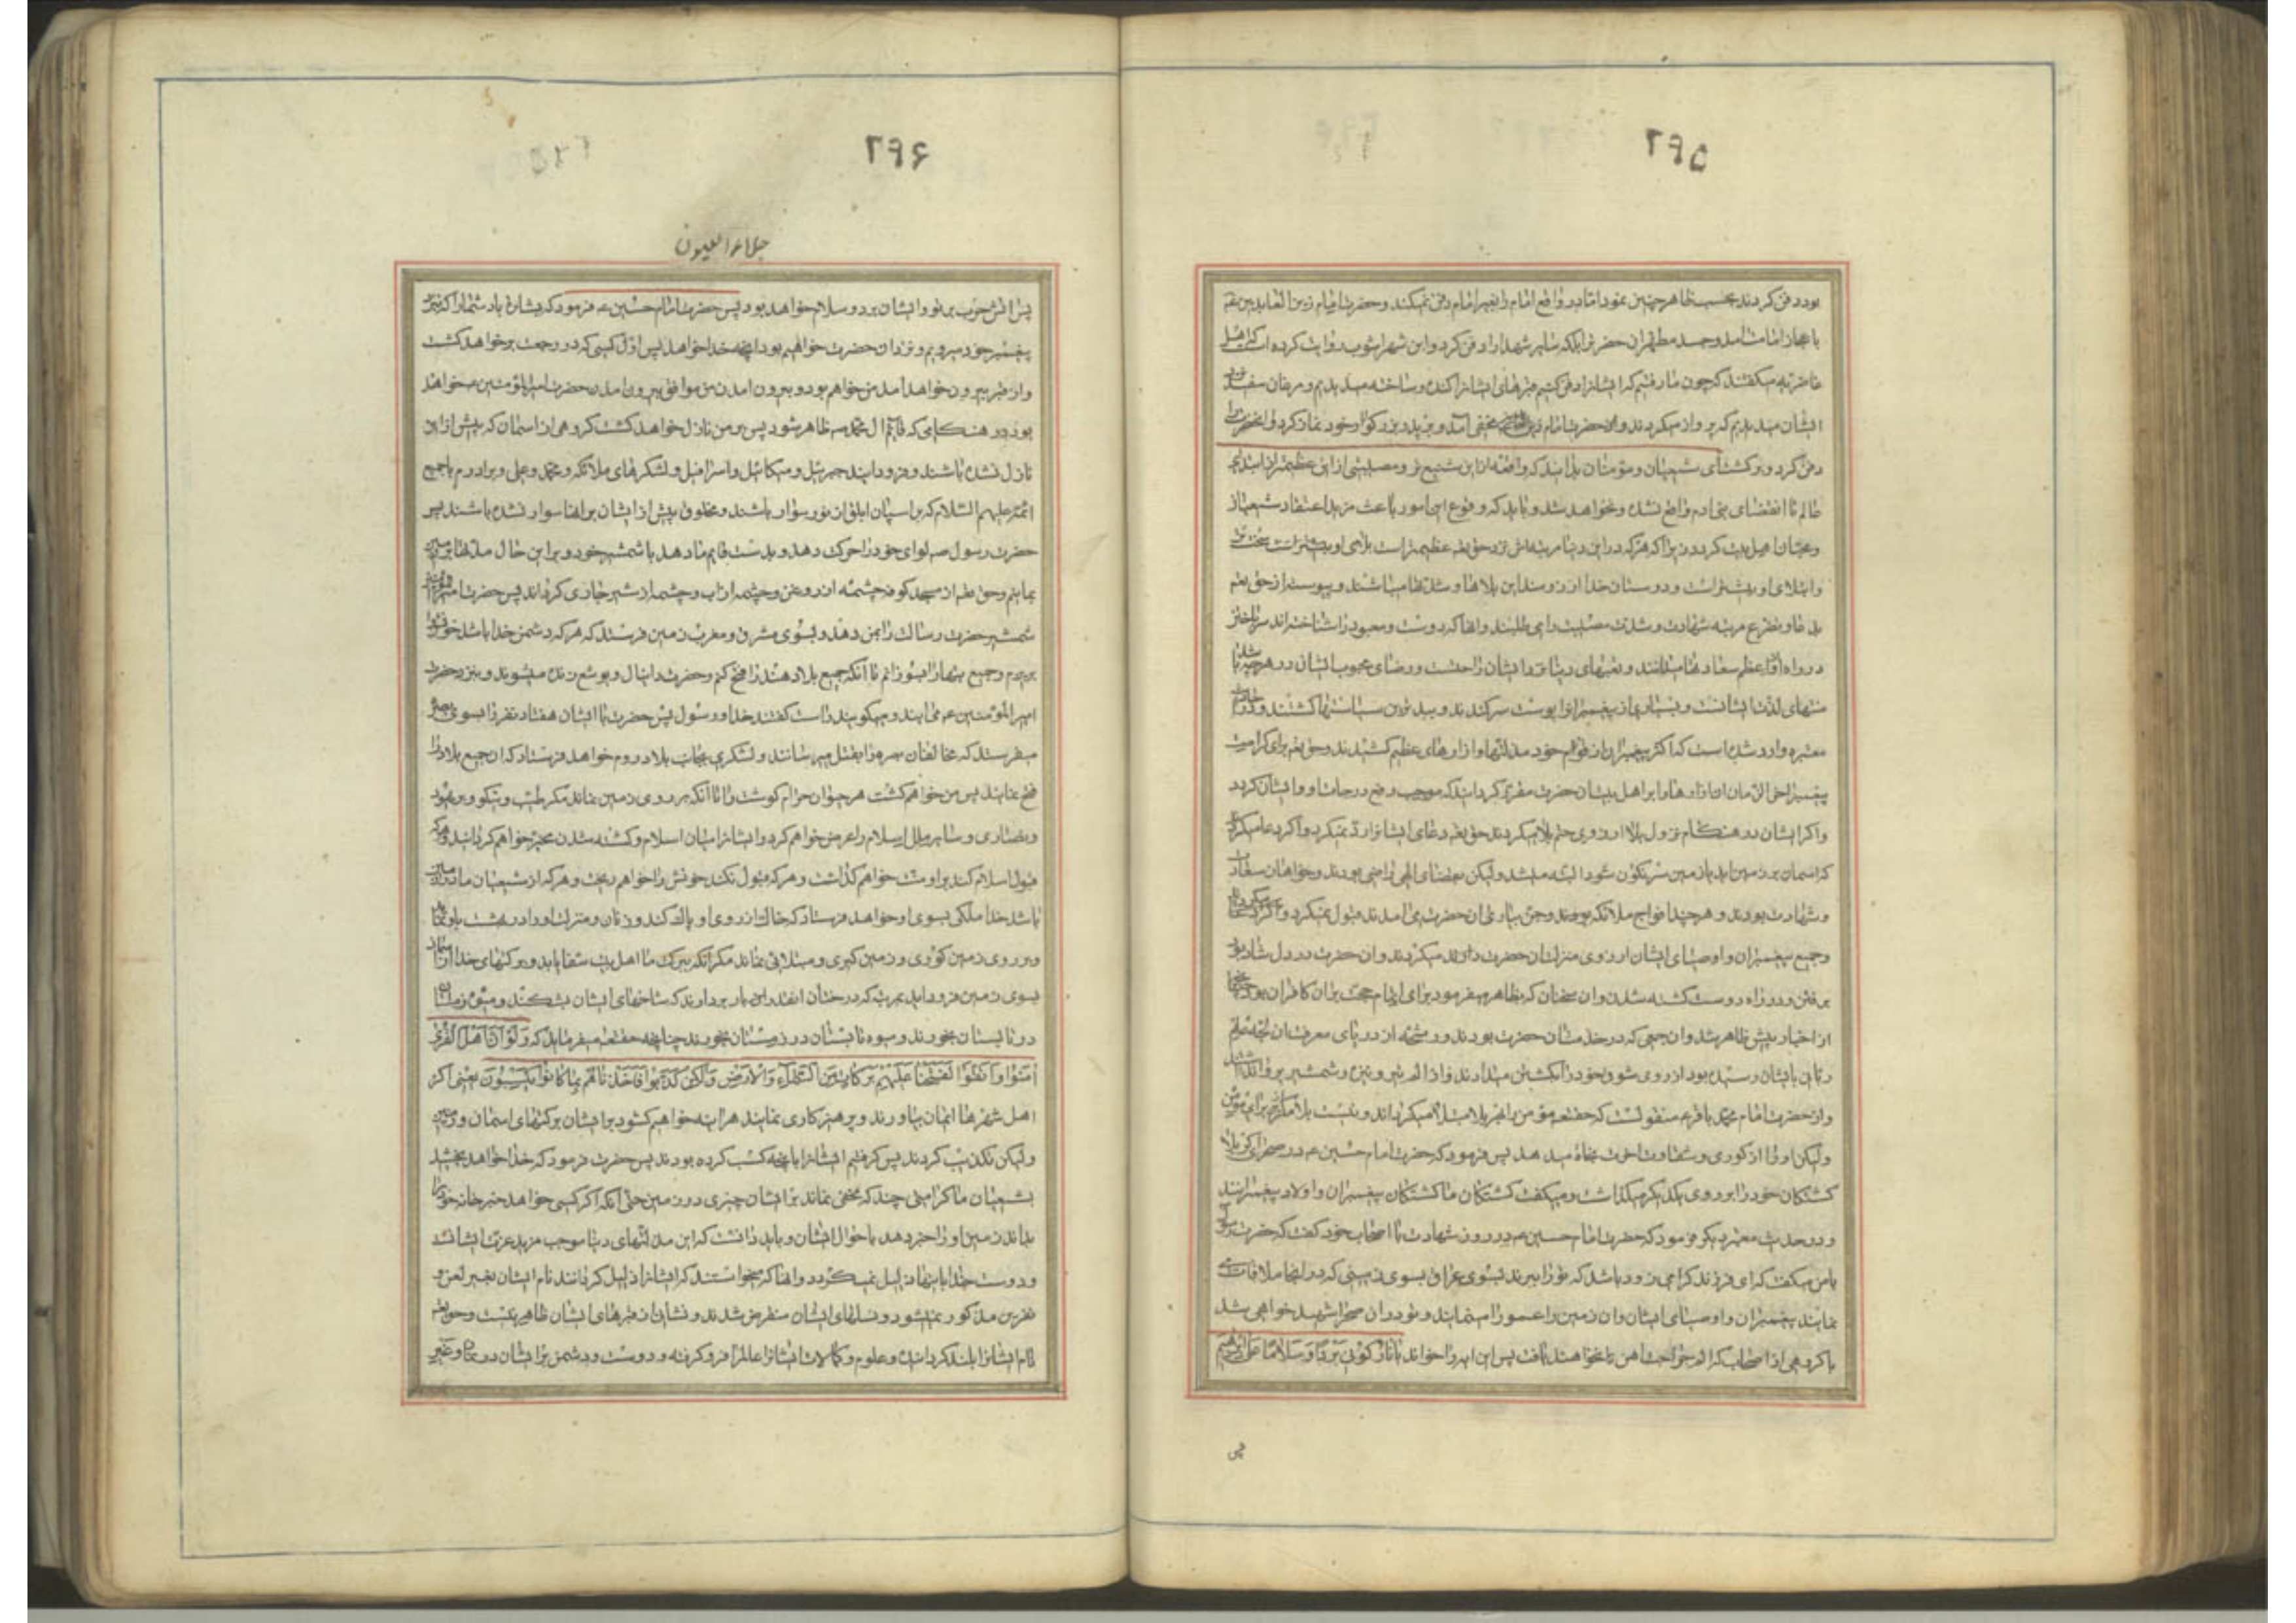 ۲۹۵
بود دفن کردند بحسب ظاهر چنین نمود اما در واقع امام را بغیر امام دفن نمیکند و حضرت امام زین العابدین ع
باعجاز امامت آمد و جسد مطهر آن حضرت را بلکه سایر شهدا را دفن کرد و ابن شهر آشوب روایت کرده است که اهل
غاضریه میگفتند که چون ما رفتیم که ایشانرا دفن کنیم قبرهای ایشانرا کنده و ساخته میدیدیم و مرغان سفید نزد
ایشان میدیدیم که پرواز میکردند و حضرت امام زین مخفی آمد و بر پدر بزرگوار خود نماز کرد و آنحضرت را
دفن کرد و برگشت ای شیعیان و مؤمنان بدانید که واقعه ازین شنیع تر و مصیبتی ازین عظیمتر از ابتدای
عالم تا انقضای بنی آدم واقع نشده و نخواهد شد و باید که وقوع این امور باعث مزید اعتقاد شیعیان
و محبان اهل بیت گردد زیرا که هرکه در این دنیا مرتبه‌اش نزد حق تعالی عظیمتر است بلای او بیشتر است
وابتلای او بیشتر است و دوستان خدا آرزومند این بلاها و شدتها میباشند و پیوسته از حق تعم
بدعا و تضرع مرتبه شهادت و شدت مصیبت را می طلبند و آنها که دوست و معبود را شناخته‌اند سر باختن
در راه او را اعظم سعادتها میدانند و نعمتهای دنیا نزد ایشان زحمت و رضای محبوب ایشان در هرچه باشد
منتهای لذت ایشانست و بسیاری از پیغمبرانرا پوست سر کندند و ببدترین سیاستها کشتند و در احادیث
معتبره وارد شده است که اکثر پیغمبران از قوم خود مذلتها و آزارهای عظیم کشیدند و حق تعم برای کرامت
پیغمبر آخر الزمان آن آزارها را بر اهل بیت آن حضرت مقرر گردانید که موجب رفع درجات او و ایشان گردد
واگر ایشان در هنگام نزول بلا آرزوی حتم بلا میکردند حق تعم دعای ایشانرا رد نمیکرد و اگر دعا میکردند
که آسمان بر زمین آید یا زمین سرنگون شود البته میشد ولیکن بقضای الهی راضی بودند و خواهان سعادت
وشهادت بودند و هر چند افواج ملائکه و جن بیاری آن حضرت می آمدند قبول نمیکرد
وجمیع پیغمبران و اوصیای ایشان آرزوی منزلت آن حضرت میکردند و آن حضرت در دل شاد بود
برفتن و در راه دوست کشته شدن و آن سخنان که بظاهر میفرمود برای اتمام حجت بر آن کافران بود چنانچه
از اخبار پیش ظاهر شد و آن جمعی که در خدمت آن حضرت بودند و رشحه از دریای معرفت آن
ربانی بایشان رسیده بود از روی شوق خود را بکشتن میدادند و از الم تیر و نیزه و شمشیر پروا نداشتند
و از حضرت امام محمد باقر ع منقولست که حقتعم مؤمن را بهر بلا مبتلا میگرداند
ولیکن او را از کوری و شقاوت آخرت نجات میدهد پس فرمود که حضرت امام حسین ع در صحرای کربلا
کشتگان خود را بر روی یکدیگر میگذاشت و میگفت کشتگان ما کشتگان پیغمبران و اولاد پیغمبرانند
و در حدیث معتبر دیگر فرمود که حضرت امام حسین ع در روز شهادت با اصحاب خود گفت که حضرت رسول
بامن میگفت که ای فرزند گرامی زود باشد که تو را ببرند بسوی عراق بسوی زمینی که در آنجا ملاقات
نمایند پیغمبران و اوصیای ایشان و آن زمین را عمورا مینامند و تو در آن صحرا شهید خواهی شد
با گروهی از اصحاب که الم جراحت آهن نخواهند یافت پس این آیه را خواند یا نار کونی بردا و سلاما علی ابرهیم
پس
۲۹۶
جلاء العیون
پس آتش حرب بر تو و ایشان برد و سلام خواهد بود پس حضرت امام حسین ع فرمود که بشارت باد شما را که نزد
پیغمبر خود میرویم و نزد آن حضرت خواهیم بود آنچه خدا خواهد پس اول کسی که در رجعت برخواهد گشت
و از قبر بیرون خواهد آمد من خواهم بود و بیرون آمدن من موافق بیرون آمدن حضرت امیر المؤمنین ع خواهد
بود در هنگامی که قائم آل محمد ص ظاهر شود پس بر من نازل خواهد گشت گروهی از آسمان که پیش از این
نازل نشده باشند و فرود آیند جبرئیل و میکائیل و اسرافیل و لشکرهای ملائکه و محمد و علی و برادرم با جمیع
ائمه علیهم السلام که بر اسپان ابلق از نور سوار باشند و مخلوق پیش از ایشان بر آنها سوار نشده باشند پس
حضرت رسول ص لوای خود را حرکت دهد و بدست قایم ما دهد با شمشیر خود و بر این حال مدتها در زمین
بمانیم و حق تعم از مسجد کوفه چشمه از روغن و چشمه از آب و چشمه از شیر جاری گرداند پس حضرت امیر المؤمنین
شمشیر حضرت رسالت را بمن دهد و بسوی مشرق و مغرب زمین فرستد که هر که دشمن خدا باشد خونش را
بریزم و جمیع بتها را بسوزانم تا آنکه جمیع بلاد هند را فتح کنم و حضرت دانیال و یوشع زنده میشوند و بنزد حضرت
امیر المؤمنین ع می آیند و میگویند راست گفتند خدا و رسول پس حضرت با ایشان هفتاد نفر را بسوی بصره
میفرستد که مخالفان بصره را بقتل میرسانند و لشکری بجانب بلاد روم خواهد فرستاد که آن جمیع بلاد را
فتح نمایند پس من خواهم کشت هر حیوان حرام گوشت را تا آنکه بر روی زمین نماند مگر طیب و نیکو و بر یهود
و نصاری و سایر ملل اسلام را عرض خواهم کرد و ایشانرا میان اسلام و کشته شدن مخیر خواهم گردانید و هرکه
قبول اسلام کند بر او منت خواهم گذاشت و هرکه قبول نکند خونش را خواهم ریخت و هرکه از شیعیان ما
باشد خدا ملکی بسوی او خواهد فرستاد که خاک از روی او پاک کند و زنان و منزلت او را در بهشت باو بنماید
و بر روی زمین کوری و زمین گیری و مبتلائی نماند مگر آنکه ببرکت ما اهل بیت شفا یابد و برکتهای خدا از آسمان
بسوی زمین فرود آید بمرتبه که درختان آنقدر بار بردارند که شاخهای ایشان بشکند و میوه زمستان
در تابستان بخورند و میوه تابستان در زمستان بخورند چنانچه حقتعم میفرماید که ولو ان اهل القری
آمنوا واتقوا لفتحنا علیهم برکات من السماء والارض ولکن کذبوا فاخذناهم بما کانوا یکسبون یعنی اگر
اهل شهرها ایمان بیاورند و پرهیزکاری نمایند هر اینه خواهیم گشود بر ایشان برکتهای آسمان و زمین
ولیکن تکذیب کردند پس گرفتیم ایشانرا بآنچه کسب کرده بودند پس حضرت فرمود که خدا خواهد بخشید
بشیعیان ما کرامتی چند که مخفی نماند بر ایشان چیزی در زمین حتی آنکه اگر کسی خواهد خبر خانه خود را
بداند زمین او را خبر دهد باحوال ایشان و باید دانست که این مذلتهای دنیا موجب مزید عزت ایشانست
و دوست خدا باینها ذلیل نمیگردد و آنها که میخواستند که ایشانرا ذلیل گردانند نام ایشان بغیر لعن و
نفرین مذکور نمیشود و نسلهای ایشان منقرض شدند و نشان از قبرهای ایشان ظاهر نیست و حق تعم
نام ایشانرا بلند گردانیده و علوم و کمالات ایشانرا عالم فرو گرفته و دوست و دشمن بر ایشان در نماز و غیر